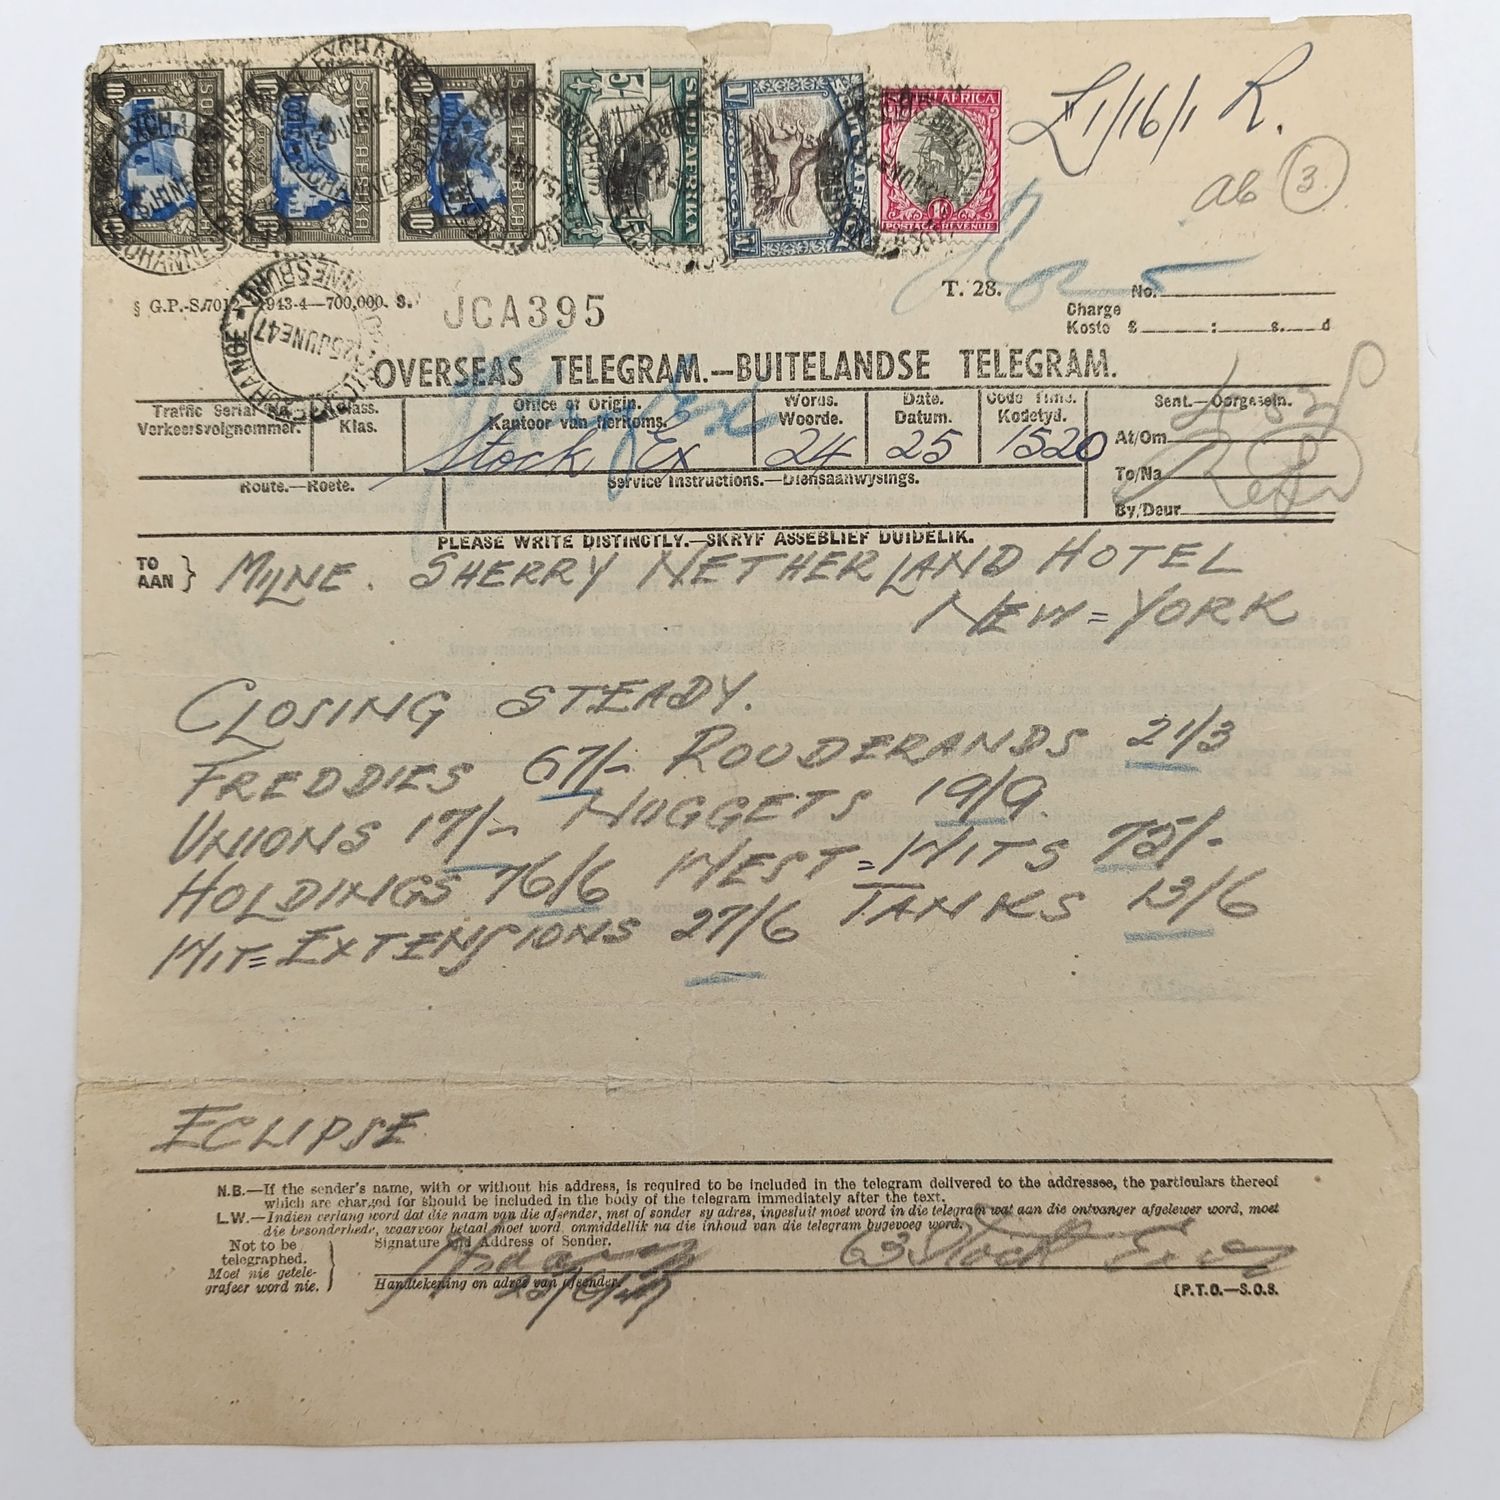 £1/16/1 R.
ab 3
§ G.P.-S.7012—1943-4—700,000. S.
JCA395
T. 28.
No.
Charge
Koste £ : s. d
STOCK EXCHANGE JOHANNESBURG 25 JUNE 47
OVERSEAS TELEGRAM.—BUITELANDSE TELEGRAM.
Traffic Serial No.
Verkeersvolgnommer.
Class.
Klas.
Office of Origin.
Kantoor van herkoms.
Stock Ex
Words.
Woorde.
24
Date.
Datum.
25
Code Time.
Kodetyd.
1520
Sent.—Oorgesein.
At/Om
To/Na
By/Deur
Route.—Roete.
Service Instructions.—Diensaanwysings.
PLEASE WRITE DISTINCTLY.—SKRYF ASSEBLIEF DUIDELIK.
TO
AAN
MILNE. SHERRY NETHERLAND HOTEL
NEW=YORK
CLOSING STEADY.
FREDDIES 67/- ROUDERANDS 21/3
UNIONS 17/- NUGGETS 19/9.
HOLDINGS 76/6 WEST=WITS 75/-
WIT=EXTENSIONS 27/6 TANKS 13/6
ECLIPSE
N.B.—If the sender's name, with or without his address, is required to be included in the telegram delivered to the addressee, the particulars thereof
which are charged for should be included in the body of the telegram immediately after the text.
L.W.—Indien verlang word dat die naam van die afsender, met of sonder sy adres, ingesluit moet word in die telegram wat aan die ontvanger afgelewer word, moet
die besonderhede, waarvoor betaal moet word, onmiddellik na die inhoud van die telegram bygevoeg word.
Not to be
telegraphed.
Moet nie getele-
grafeer word nie.
Signature and Address of Sender.
63 Stock Exch
Handtekening en adres van afsender.
25/6/47
[P.T.O.—S.O.S.